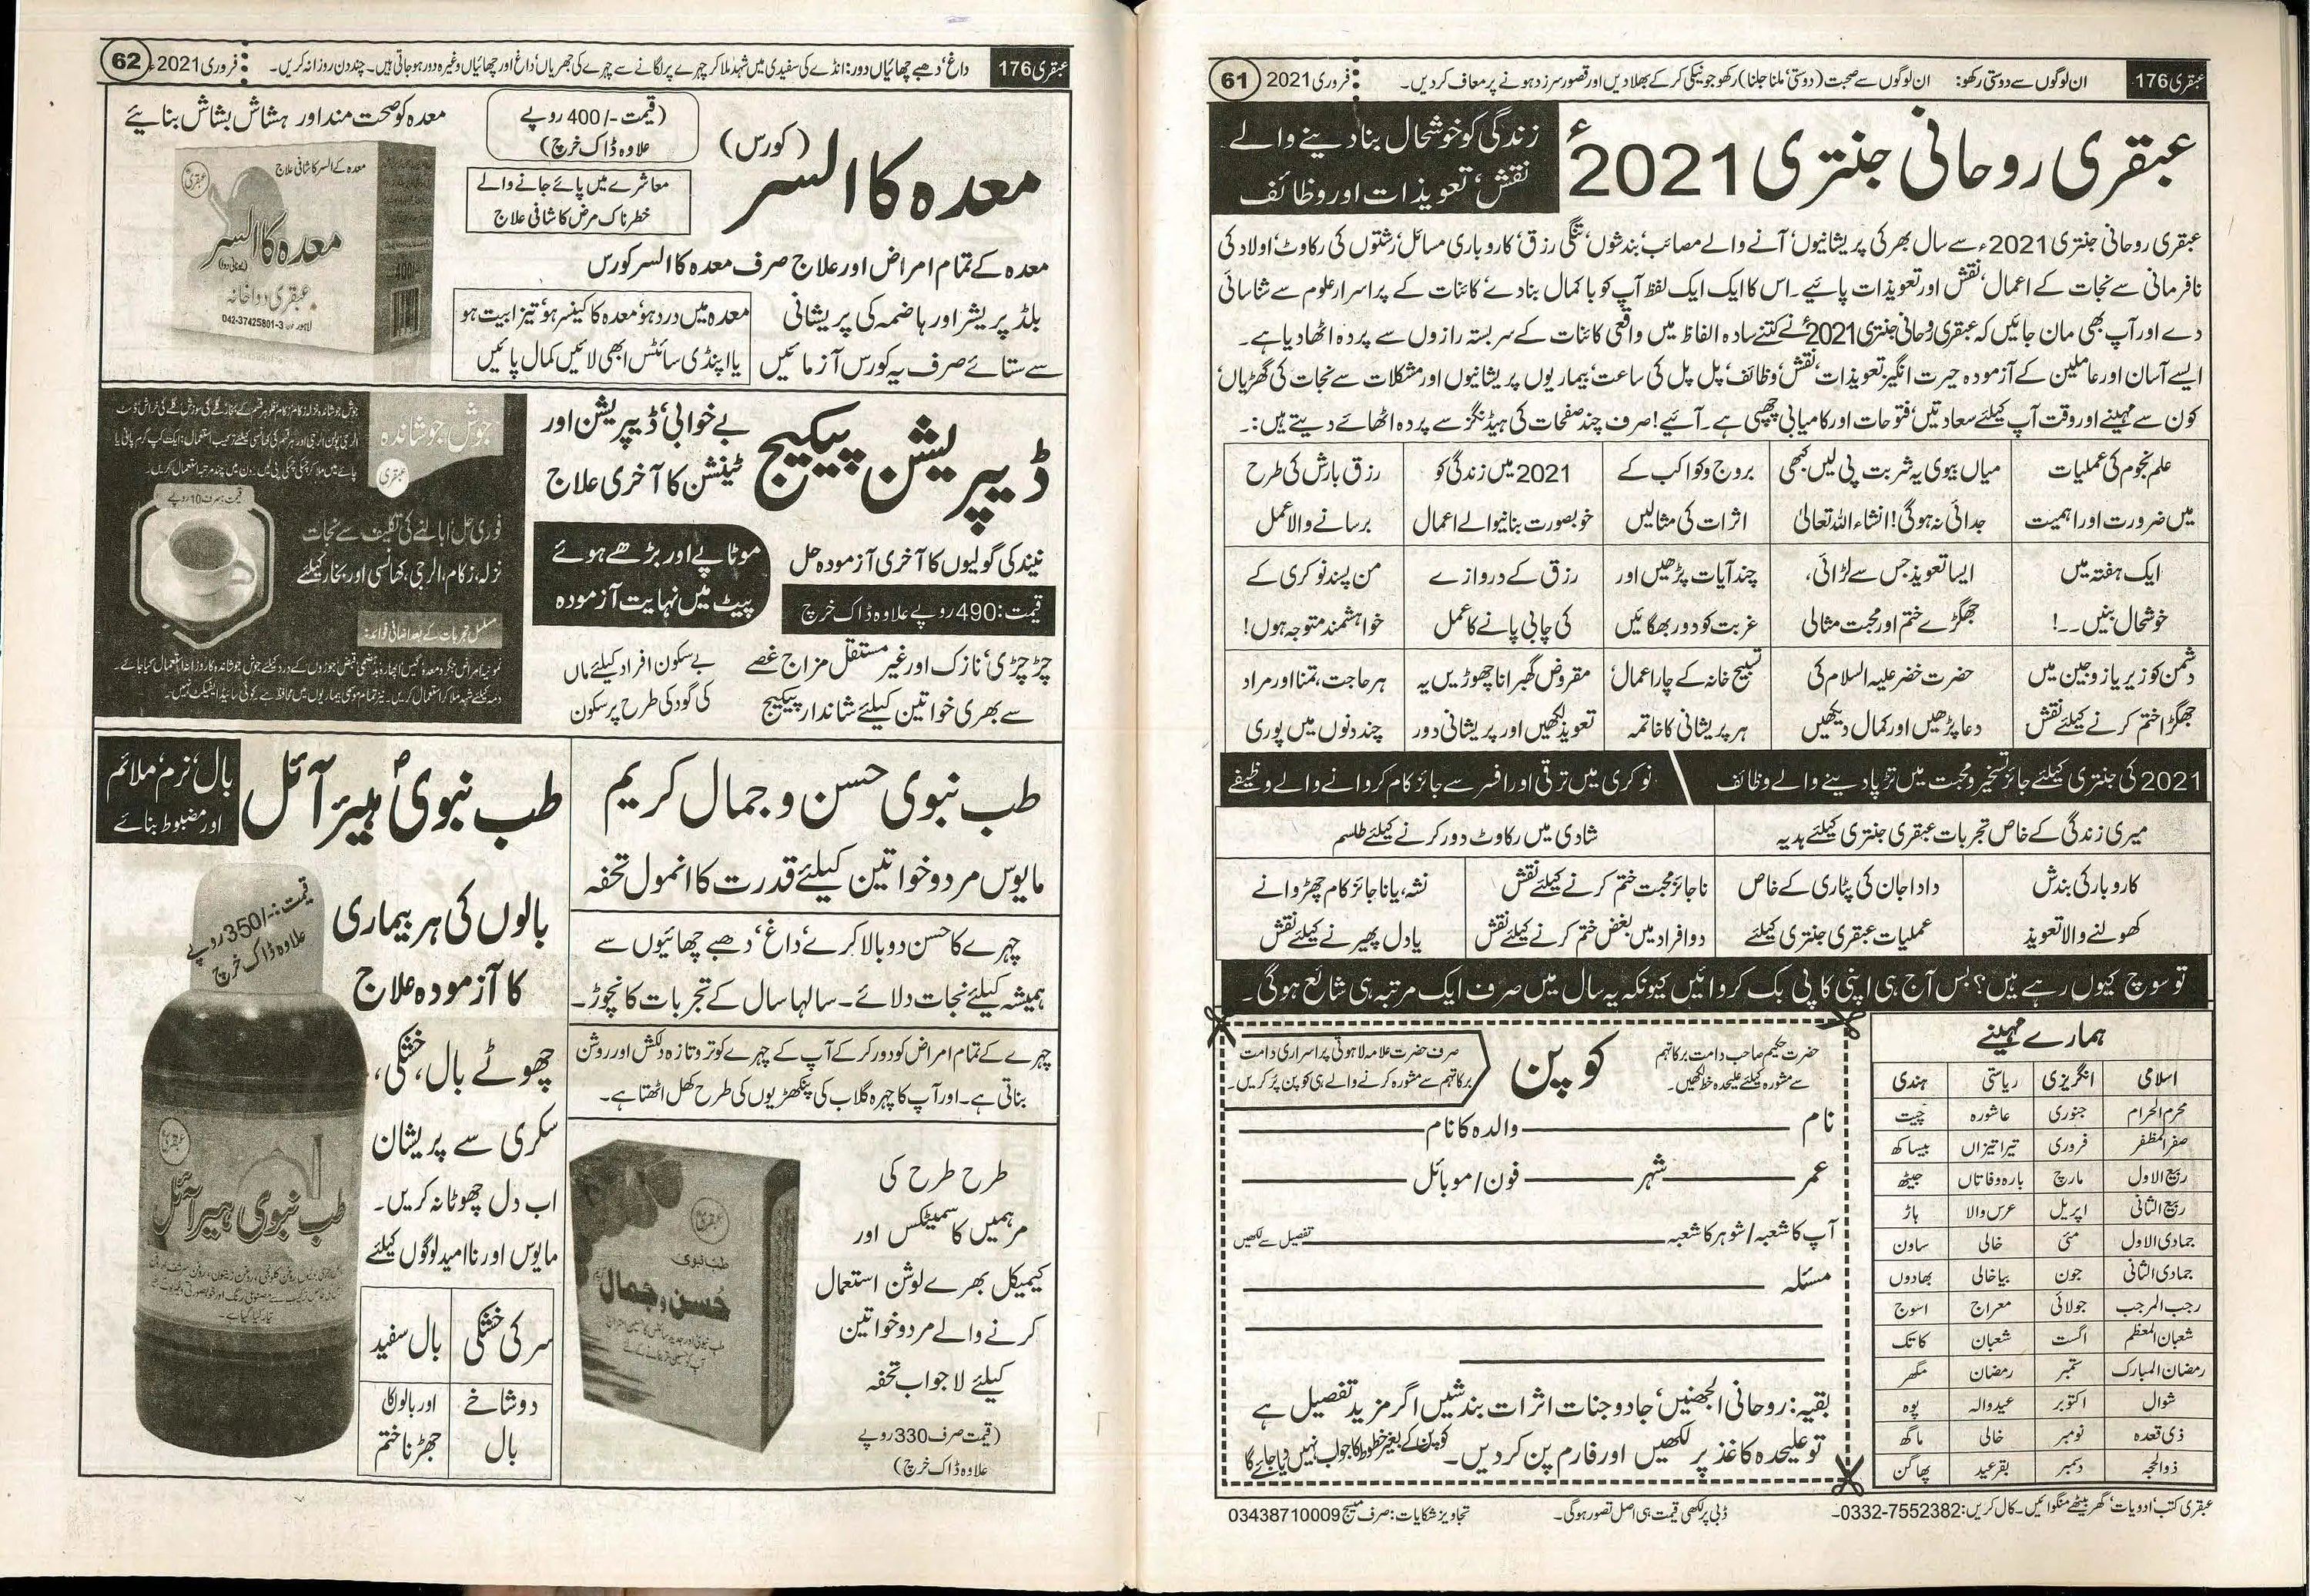 عبقری 176
ان لوگوں سے دوستی رکھو: ان لوگوں سے صحبت (دوستی، ملنا جلنا) رکھو جو نیکی کر کے بھلا دیں اور قصور سرزد ہونے پر معاف کر دیں۔
فروری 2021
61
عبقری روحانی جنتری 2021ء
زندگی کو خوشحال بنا دینے والے
نقش، تعویذات اور وظائف
عبقری روحانی جنتری 2021ء سے سال بھر کی پریشانیوں، آنے والے مصائب، بندشوں، تنگی رزق، کاروباری مسائل، رشتوں کی رکاوٹ، اولاد کی
نافرمانی سے نجات کے اعمال، نقش اور تعویذات پائیے۔ اس کا ایک ایک لفظ آپ کو باکمال بنا دے، کائنات کے پراسرار علوم سے شناسائی
دے اور آپ بھی مان جائیں کہ عبقری روحانی جنتری 2021ء نے کتنے سادہ الفاظ میں واقعی کائنات کے سربستہ رازوں سے پردہ اٹھا دیا ہے۔
ایسے آسان اور عاملین کے آزمودہ حیرت انگیز تعویذات، نقش، وظائف، پل پل کی ساعت، بیماریوں پریشانیوں اور مشکلات سے نجات کی گھڑیاں،
کون سے مہینے اور وقت آپ کیلئے سعادتیں، فتوحات اور کامیابی چھپی ہے۔ آئیے! صرف چند صفحات کی ہیڈنگز سے پردہ اٹھائے دیتے ہیں:۔
علم نجوم کی عملیات
میں ضرورت اور اہمیت
میاں بیوی یہ شربت پی لیں کبھی
جدائی نہ ہوگی! انشاء اللہ تعالیٰ
بروج و کواکب کے
اثرات کی مثالیں
2021 میں زندگی کو
خوبصورت بنانیوالے اعمال
رزق بارش کی طرح
برسانے والا عمل
ایک ہفتہ میں
خوشحال بنیں۔۔!
ایسا تعویذ جس سے لڑائی،
جھگڑے ختم اور محبت مثالی
چند آیات پڑھیں اور
غربت کو دور بھگائیں
رزق کے دروازے
کی چابی پانے کا عمل
من پسند نوکری کے
خواہشمند متوجہ ہوں!
دشمن کو زیر یا زوجین میں
جھگڑا ختم کرنے کیلئے نقش
حضرت خضر علیہ السلام کی
دعا پڑھیں اور کمال دیکھیں
تسبیح خانہ کے چار اعمال،
ہر پریشانی کا خاتمہ
مقروض گھبرانا چھوڑیں یہ
تعویذ لکھیں اور پریشانی دور
ہر حاجت، تمنا اور مراد
چند دنوں میں پوری
2021 کی جنتری کیلئے جائز تسخیر و محبت میں تڑپا دینے والے وظائف
نوکری میں ترقی اور افسر سے جائز کام کروانے والے وظیفے
میری زندگی کے خاص تجربات عبقری جنتری کیلئے ہدیہ
شادی میں رکاوٹ دور کرنے کیلئے طلسم
کاروبار کی بندش
کھولنے والا تعویذ
دادا جان کی پٹاری کے خاص
عملیات عبقری جنتری کیلئے
ناجائز محبت ختم کرنے کیلئے نقش
دو افراد میں بغض ختم کرنے کیلئے نقش
نشہ، یا ناجائز کام چھڑوانے
یا دل پھیرنے کیلئے نقش
تو سوچ کیوں رہے ہیں؟ بس آج ہی اپنی کاپی بک کروائیں کیونکہ یہ سال میں صرف ایک مرتبہ ہی شائع ہوگی۔
ہمارے مہینے
اسلامی انگریزی ریاستی ہندی
محرم الحرام جنوری عاشورہ چیت
صفر المظفر فروری تیراتیزاں بیساکھ
ربیع الاول مارچ بارہ وفاتاں جیٹھ
ربیع الثانی اپریل عرس والا ہاڑ
جمادی الاول مئی خالی ساون
جمادی الثانی جون بیاخالی بھادوں
رجب المرجب جولائی معراج اسوج
شعبان المعظم اگست شعبان کاتک
رمضان المبارک ستمبر رمضان مگھر
شوال اکتوبر عیدوالہ پوہ
ذی قعدہ نومبر خالی ماگھ
ذوالحجہ دسمبر بقرعید پھاگن
حضرت حکیم صاحب دامت برکاتہم
سے مشورہ کیلئے علیحدہ خط لکھیں۔
کوپن
صرف حضرت علامہ لاہوتی پراسراری دامت
برکاتہم سے مشورہ کرنے والے ہی کوپن پُر کریں۔
نام والدہ کا نام
عمر شہر فون/موبائل
آپ کا شعبہ/شوہر کا شعبہ تفصیل سے لکھیں
مسئلہ
بقیہ: روحانی الجھنیں، جادو جنات اثرات بندشیں اگر مزید تفصیل ہے
تو علیحدہ کاغذ پر لکھیں اور فارم پن کر دیں۔ کوپن کے بغیر خطوط کا جواب نہیں دیا جائے گا
عبقری کتب، ادویات، گھر بیٹھے منگوائیں۔ کال کریں: 0332-7552382۔
ڈبی پر لکھی قیمت ہی اصل تصور ہوگی۔
تجاویز شکایات: صرف میسج 03438710009
عبقری 176
داغ، دھبے چھائیاں دور: انڈے کی سفیدی میں شہد ملا کر چہرے پر لگانے سے چہرے کی جھریاں، داغ اور چھائیاں وغیرہ دور ہو جاتی ہیں۔ چند دن روزانہ کریں۔
فروری 2021ء
62
معدہ کا السر (کورس)
(قیمت -/400 روپے
علاوہ ڈاک خرچ)
معاشرے میں پائے جانے والے
خطرناک مرض کا شافی علاج
معدہ کو صحت مند اور ہشاش بشاش بنائیے
معدہ کے السر کا شافی علاج
عبقری
معدہ کا السر
عبقری دواخانہ
042-37425801-3
400/-
معدہ کے تمام امراض اور علاج صرف معدہ کا السر کورس
بلڈ پریشر اور ہاضمہ کی پریشانی
سے ستائے صرف یہ کورس آزمائیں
معدہ میں درد ہو، معدہ کا کینسر ہو، تیزابیت ہو
یا اپنڈی سائٹس ابھی لائیں کمال پائیں
ڈیپریشن پیکیج
بے خوابی، ڈیپریشن اور
ٹینشن کا آخری علاج
نیند کی گولیوں کا آخری آزمودہ حل
قیمت: 490 روپے علاوہ ڈاک خرچ
موٹاپے اور بڑھے ہوئے
پیٹ میں نہایت آزمودہ
چڑچڑی، نازک اور غیر مستقل مزاج غصے
سے بھری خواتین کیلئے شاندار پیکیج
بے سکون افراد کیلئے ماں
کی گود کی طرح پرسکون
جوش جوشاندہ
عبقری
قیمت: صرف 10 روپے
فوری حل، ابالنے کی تکلیف سے نجات
نزلہ، زکام، الرجی، کھانسی اور بخار کیلئے
مسلسل تجربات کے بعد اضافی فوائد:
طب نبوی حسن و جمال کریم
مایوس مرد و خواتین کیلئے قدرت کا انمول تحفہ
چہرے کا حسن دوبالا کرے، داغ، دھبے چھائیوں سے
ہمیشہ کیلئے نجات دلائے۔ سالہا سال کے تجربات کا نچوڑ۔
چہرے کے تمام امراض کو دور کر کے آپ کے چہرے کو تروتازہ دلکش اور روشن
بناتی ہے۔ اور آپ کا چہرہ گلاب کی پنکھڑیوں کی طرح کھل اٹھتا ہے۔
طرح طرح کی
مرہمیں کاسمیٹکس اور
کیمیکل بھرے لوشن استعمال
کرنے والے مرد و خواتین
کیلئے لاجواب تحفہ
(قیمت صرف 330 روپے
علاوہ ڈاک خرچ)
عبقری
طب نبوی
حُسن و جمال
طب نبویؐ ہیئر آئل
بال، نرم، ملائم
اور مضبوط بنائے
قیمت:-/350 روپے
علاوہ ڈاک خرچ
بالوں کی ہر بیماری
کا آزمودہ علاج
چھوٹے بال، خشکی،
سکری سے پریشان
اب دل چھوٹا نہ کریں۔
مایوس اور ناامید لوگوں کیلئے
سر کی خشکی
بال سفید
دو شاخے
بال
اور بالوں کا
جھڑنا ختم
عبقری
طب نبوی ہیر آئل